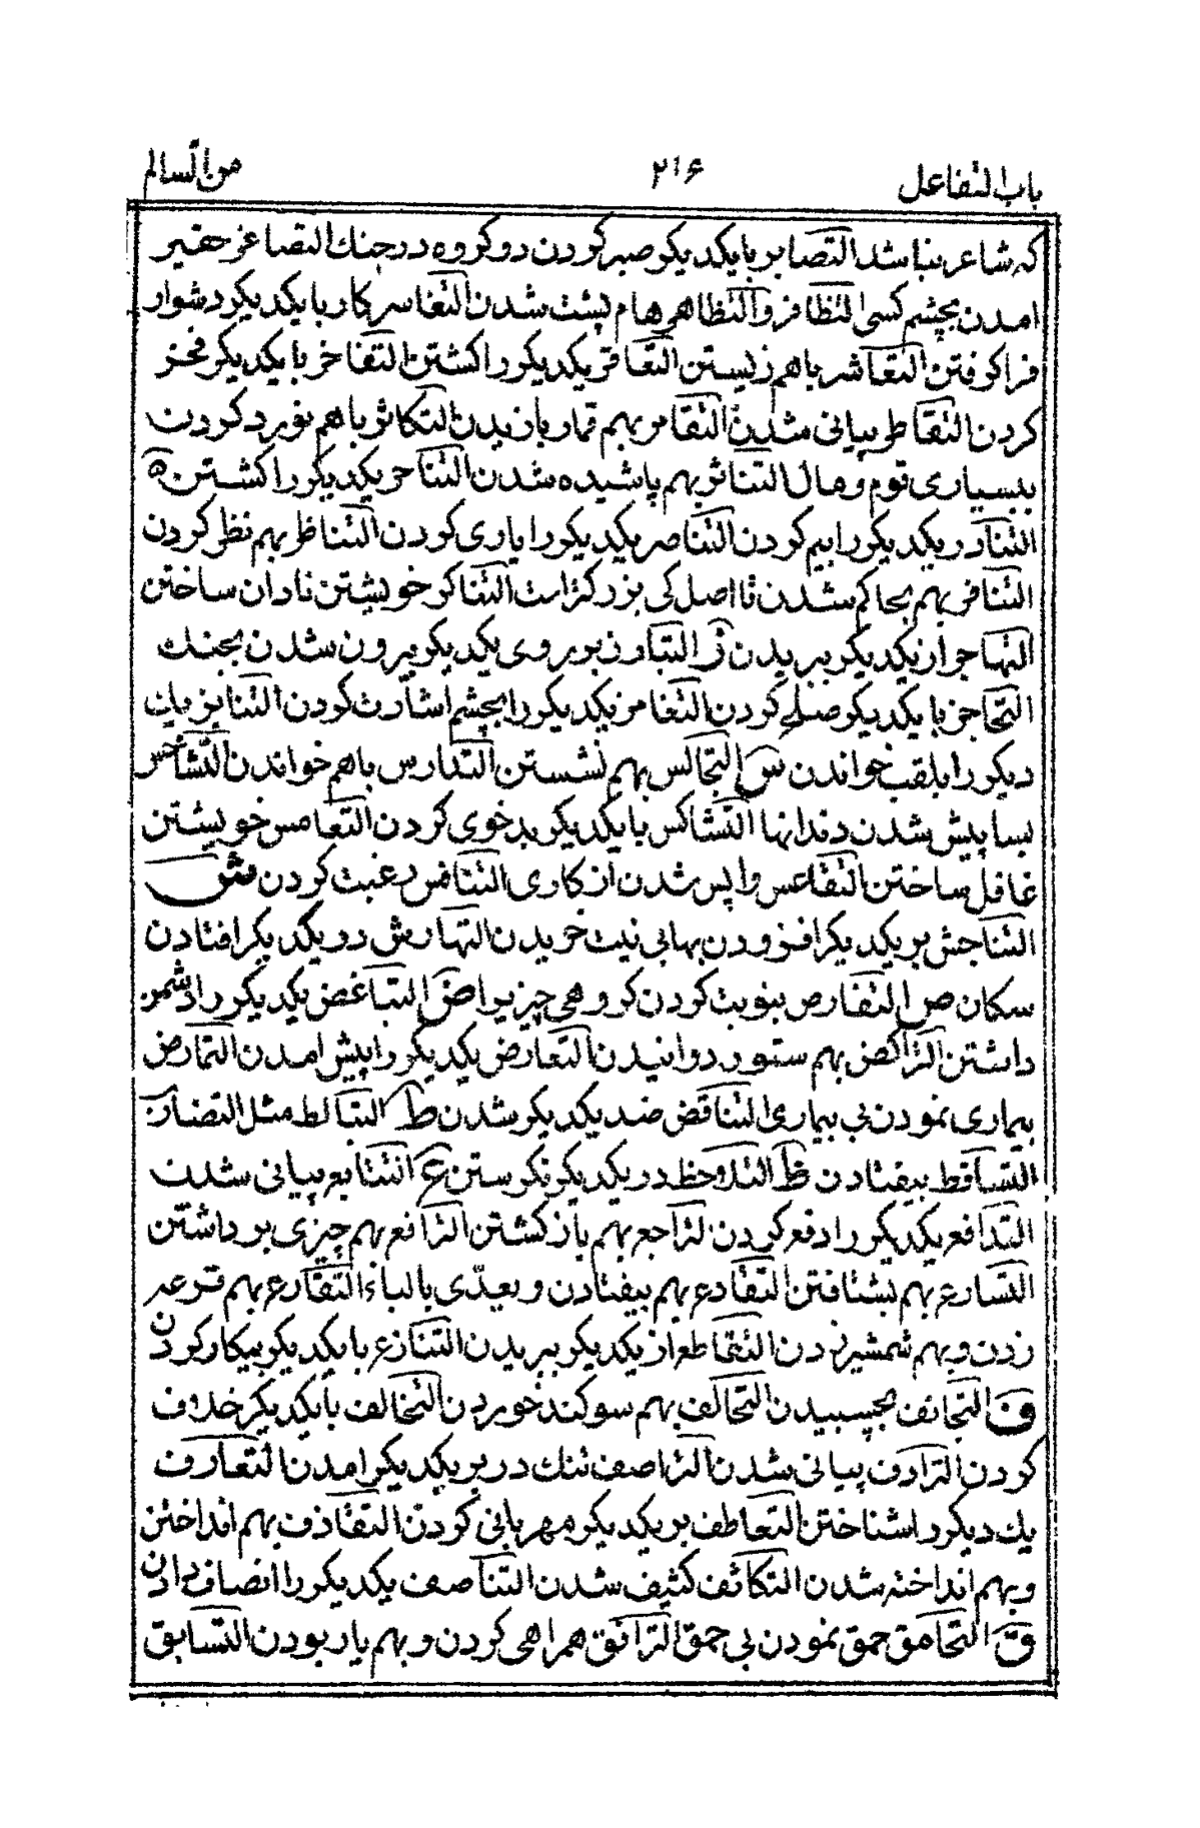 باب التفاعل ۲۱۶ من السالم
که شاعر نباشد التصابر بایکدیکر صبر کردن دو کروه در جنك التصاغر حقیر
امدن بچشم کسی التظافر والتظاهر هام پشت شدن التعاسر کار بایکدیکر دشوار
فرا کرفتن التعاشر باهم زیستن التعاقر یکدیکر را کشتن التفاخر بایکدیکر فخر
کردن التقاطر پیاپی شدن التقامر بهم قمار بازیدن التکاثر باهم نورد کردن
ببسیاری قوم و مال التناثر بهم پاشیده شدن التناحر یکدیکر را کشتن
التناذر یکدیکر را بیم کردن التناصر یکدیکر را یاری کردن التناظر بهم نظر کردن
التنافر بهم بحاکم شدن تا اصل کی بزرکتر است التناکر خویشتن نادان ساختن
التهاجر از یکدیکر ببریدن ز التبارز بر روی یکدیکر بیرون شدن بجنك
التحاجز بایکدیکر صلح کردن التغامز یکدیکر را بچشم اشارت کردن التنابز یك
دیکر را بلقب خواندن س التجالس بهم نشستن التدارس باهم خواندن التشاخس
پسا پیش شدن دندانها التشاکس بایکدیکر بدخوی کردن التعامس خویشتن
غافل ساختن التقاعس واپس شدن از کاری التنافس رغبت کردن ش
التناجش بر یکدیکر افزودن بهابی نیت خریدن التهارش در یکدیکر افتادن
سکان ص التفارص بنوبت کردن کروهی چیزیرا ض التباغض یکدیکر را دشمن
داشتن التراکض بهم ستور دوانیدن التعارض یکدیکر را پیش امدن التمارض
بیماری نمودن بی بیماری التناقض ضد یکدیکر شدن ط التبالط مثل التضارب
التساقط بیفتادن ظ التلاحظ در یکدیکر نکرستن ع التتابع پیاپی شدن
التدافع یکدیکر را دفع کردن التراجع بهم باز کشتن الترافع بهم چیزی برداشتن
التسارع بهم بشتافتن التقادع بهم بیفتادن و یعدّی بالباء التقارع بهم قرعه
زدن و بهم شمشیر زدن التقاطع از یکدیکر ببریدن التنازع بایکدیکر پیکار کردن
ف التجانف بچسبیدن التحالف بهم سوکند خوردن التخالف بایکدیکر خلاف
کردن الترادف پیاپی شدن التراصف تنك در بر یکدیکر امدن التعارف
یك دیکر را شناختن التعاطف بر یکدیکر مهربانی کردن التقاذف بهم انداختن
و بهم انداخته شدن التکاثف کثیف شدن التناصف یکدیکر را انصاف دادن
ق التحامق حمق نمودن بی حمق الترافق همراهی کردن و بهم یار بودن التسابق